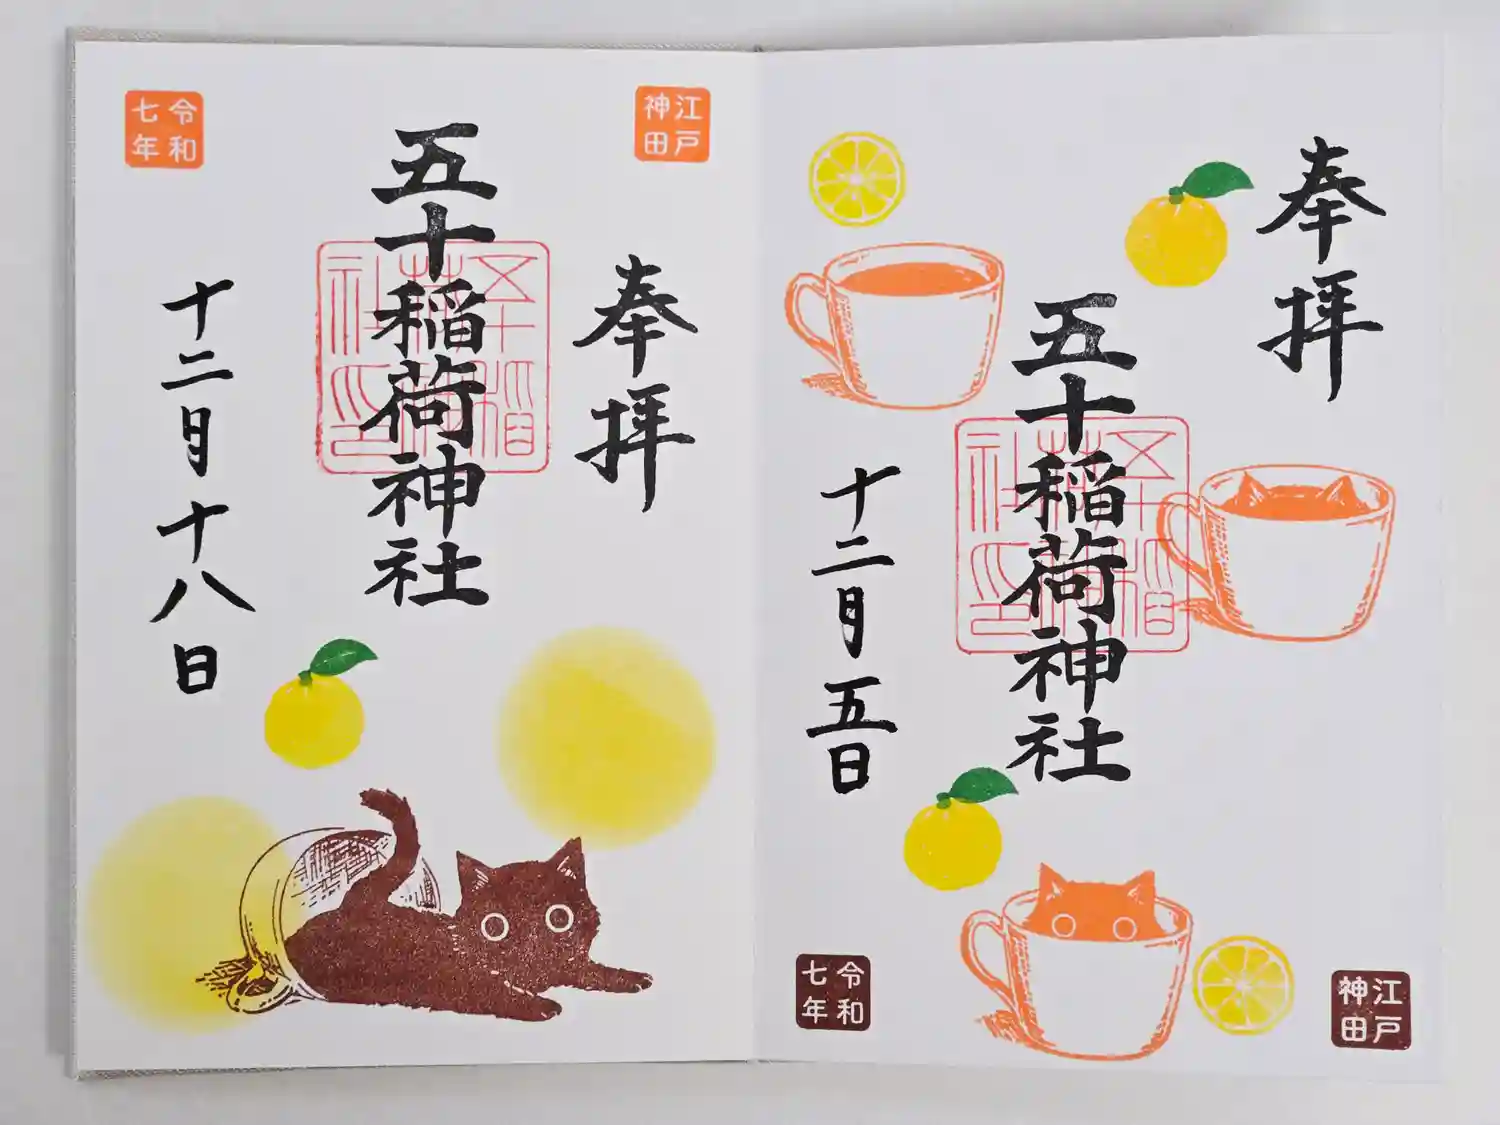 奉拝
五十稲荷神社
十二月五日
江戸
神田
令和
七年
奉拝
五十稲荷神社
十二月十八日
江戸
神田
令和
七年